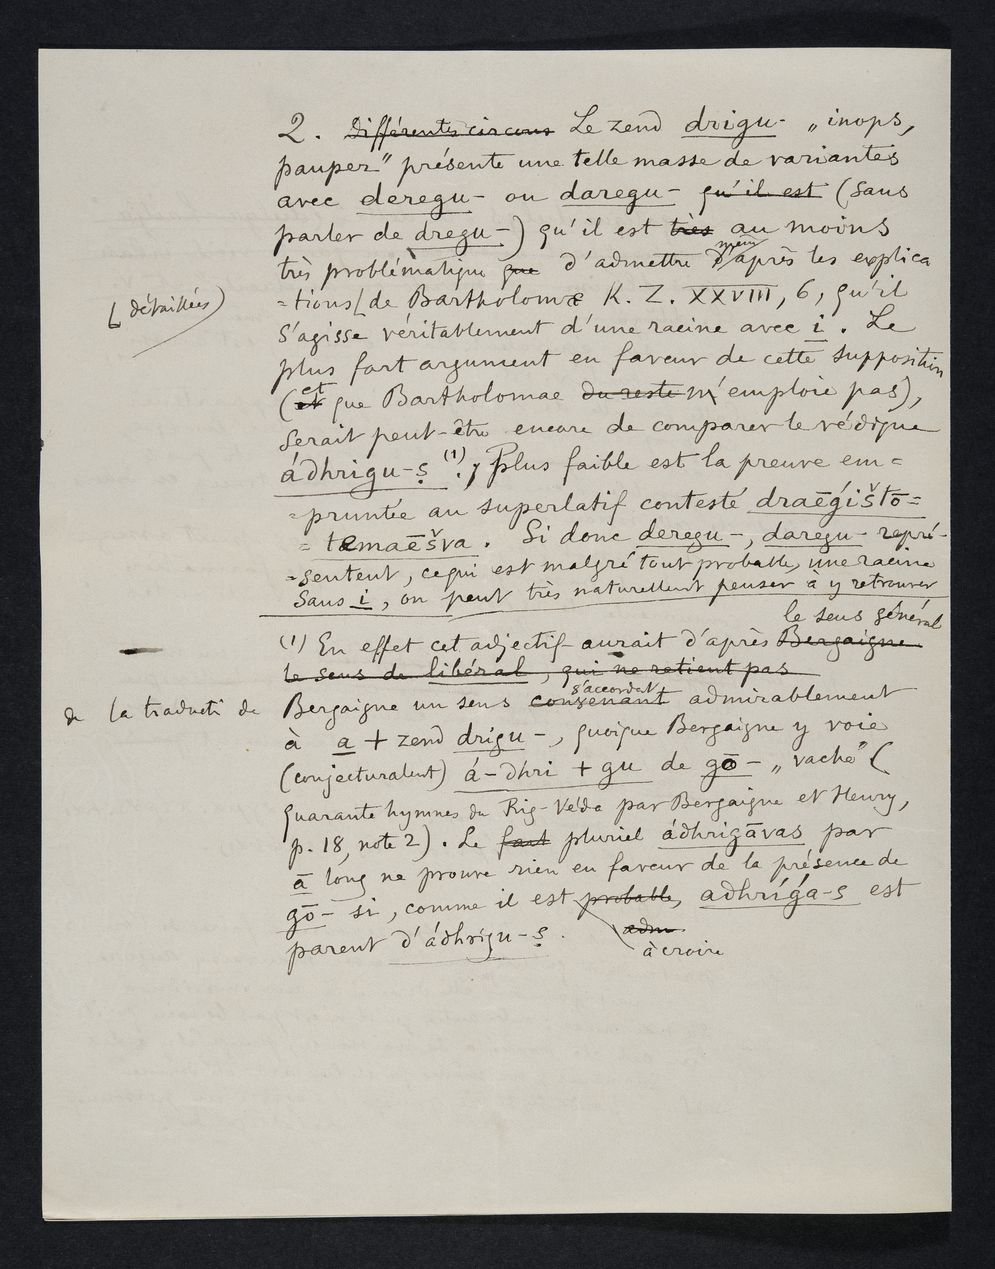 2. Différentes circons Le zend drigu- „inops,
pauper" présente une telle masse de variantes
avec deregu- ou daregu- qu'il est (sans
parler de dregu-) qu'il est très au moins
très problématique que d'admettre même d'après les explica
=tions [de Bartholomæ K. Z. XXVIII, 6, qu'il
[détaillées)
s'agisse véritablement d'une racine avec i. Le
plus fort argument en faveur de cette supposition
(et que Bartholomae du reste n'emploie pas),
serait peut-être encore de comparer le védique
ádhrigu-s (1). Plus faible est la preuve em=
=pruntée au superlatif contesté draēgištō=
=temaēšva. Si donc deregu-, daregu- repré-
=sentent, ce qui est malgré tout probable, une racine
sans i, on peut très naturellement penser à y retrouver
le sens général
(1) En effet cet adjectif aurait d'après Bergaigne
le sens de libéral, qui ne retient pas
de la traducti de
Bergaigne un sens convenant s'accordant admirablement
à a + zend drigu-, quoique Bergaigne y voie
(conjecturalent) á-dhri + gu de gō- „vache" (
Quarante hymnes du Rig-Véda par Bergaigne et Henry,
p. 18, note 2). Le pluriel ádhrigāvas par
ā long ne prouve rien en faveur de la présence de
gō- si, comme il est probable, adhríga-s est
adm
à croire
parent d'ádhrigu-s.